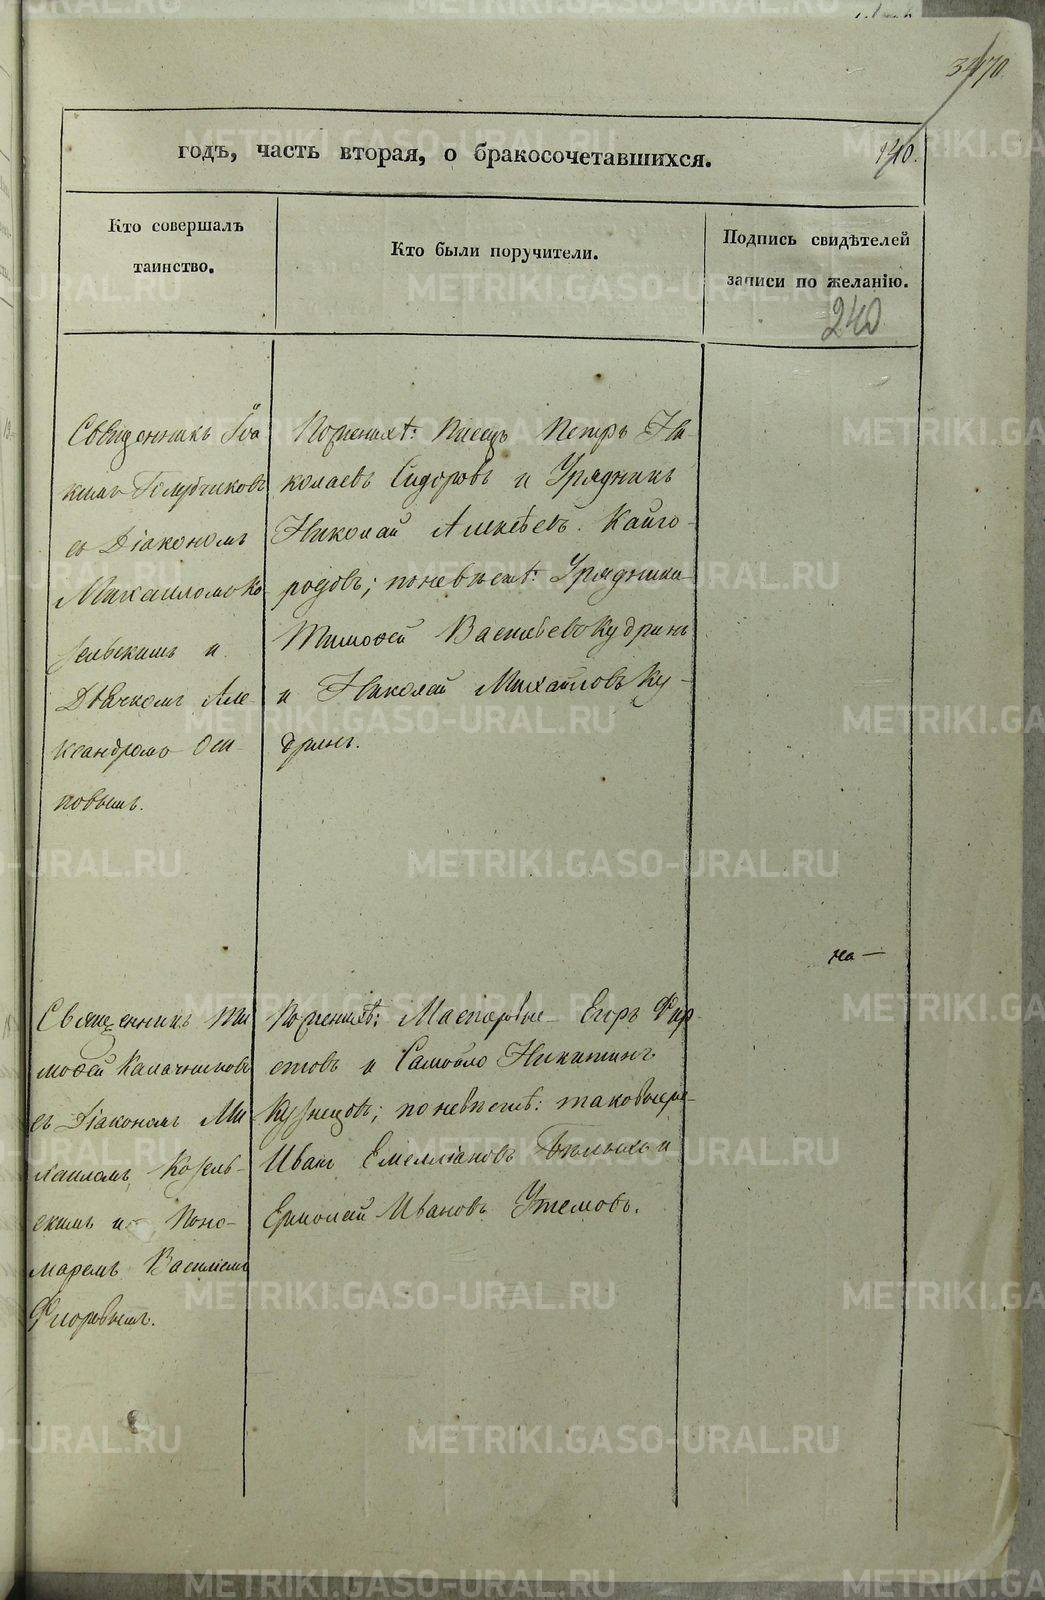 годъ, часть вторая, о бракосочетавшихся.
140.
Кто совершалъ
таинство.
Кто были поручители.
Подпись свидѣтелей
записи по желанію.
240
Священникъ Іоа
кимъ Голубчиковъ
съ Діакономъ
Михаиломъ Ко
зельскимъ и
Дьячкомъ Але
ксандромъ Оси
повымъ.
По женихѣ: Писецъ Петръ Ни-
колаевъ Сидоровъ и Урядникъ
Николай Алексѣевъ Кайго-
родовъ; по невѣстѣ: Урядники
Тимофей Васильевъ Кудринъ
и Николай Михайловъ Ку-
дринъ.
на —
Священникъ Ти
мофей Калачниковъ
съ Діакономъ Ми
хаиломъ Козель-
скимъ и Поно-
маремъ Василіемъ
Флоровымъ.
По женихѣ: Мастеровые Егоръ
и Самойло Никитинъ
Кузнецовъ; по невѣстѣ: таковые же
Иванъ Емельяновъ Бѣлыхъ и
Ермолай Ивановъ Утемовъ.
METRIKI.GASO-URAL.RU